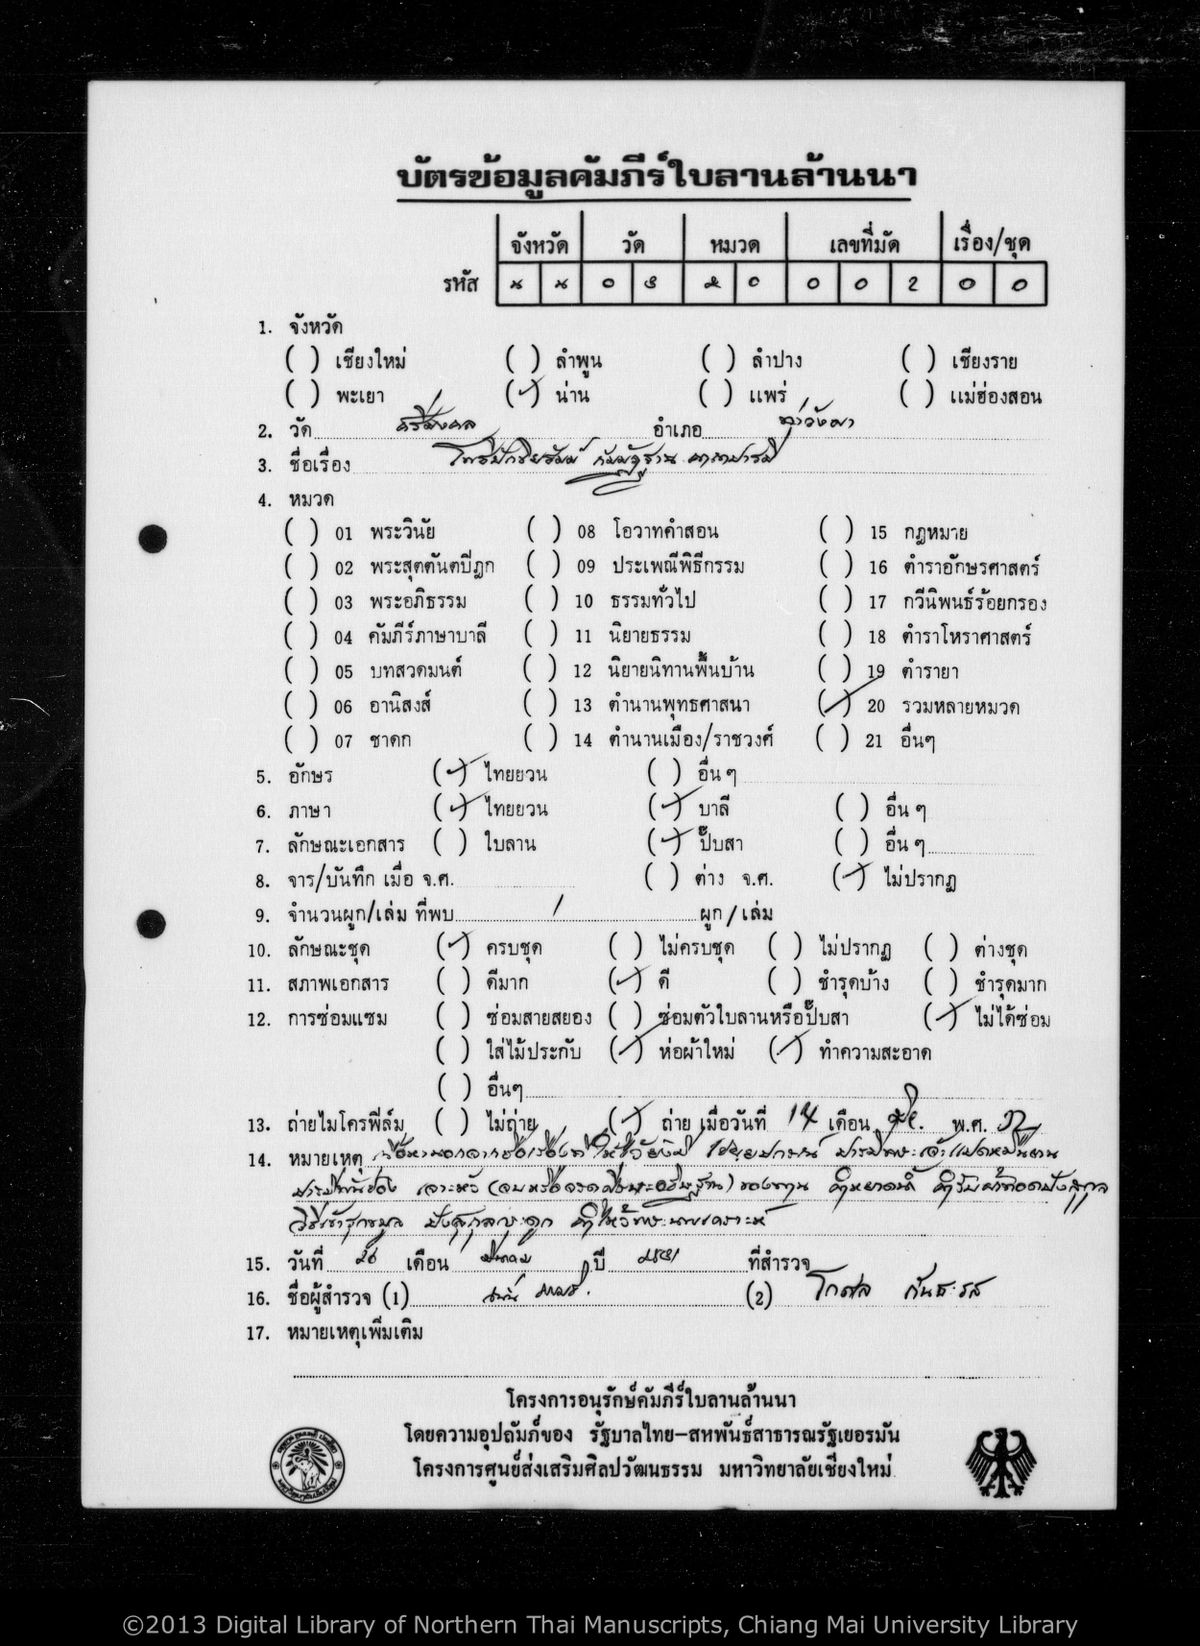 บัตรข้อมูลคัมภีร์ใบลานล้านนา
จังหวัด วัด หมวด เลขที่มัด เรื่อง/ชุด
รหัส น น 0 0 0 2 0 0
1. จังหวัด
( ) เชียงใหม่ ( ) ลำพูน ( ) ลำปาง ( ) เชียงราย
( ) พะเยา (✓) น่าน ( ) แพร่ ( ) แม่ฮ่องสอน
2. วัด ศรีมงคล อำเภอ ท่าวังผา
3. ชื่อเรื่อง โพธิปักขิยธัมม์ กัมมัฏฐาน
4. หมวด
( ) 01 พระวินัย ( ) 08 โอวาทคำสอน ( ) 15 กฎหมาย
( ) 02 พระสุตตันตปิฎก ( ) 09 ประเพณีพิธีกรรม ( ) 16 ตำราอักษรศาสตร์
( ) 03 พระอภิธรรม ( ) 10 ธรรมทั่วไป ( ) 17 กวีนิพนธ์ร้อยกรอง
( ) 04 คัมภีร์ภาษาบาลี ( ) 11 นิยายธรรม ( ) 18 ตำราโหราศาสตร์
( ) 05 บทสวดมนต์ ( ) 12 นิยายนิทานพื้นบ้าน ( ) 19 ตำรายา
( ) 06 อานิสงส์ ( ) 13 ตำนานพุทธศาสนา (✓) 20 รวมหลายหมวด
( ) 07 ชาดก ( ) 14 ตำนานเมือง/ราชวงศ์ ( ) 21 อื่นๆ
5. อักษร (✓) ไทยยวน ( ) อื่น ๆ
6. ภาษา (✓) ไทยยวน (✓) บาลี ( ) อื่น ๆ
7. ลักษณะเอกสาร ( ) ใบลาน (✓) ปั๊บสา ( ) อื่น ๆ
8. จาร/บันทึก เมื่อ จ.ศ. ( ) ต่าง จ.ศ. (✓) ไม่ปรากฏ
9. จำนวนผูก/เล่ม ที่พบ 1 ผูก/เล่ม
10. ลักษณะชุด (✓) ครบชุด ( ) ไม่ครบชุด ( ) ไม่ปรากฏ ( ) ต่างชุด
11. สภาพเอกสาร ( ) ดีมาก (✓) ดี ( ) ชำรุดบ้าง ( ) ชำรุดมาก
12. การซ่อมแซม ( ) ซ่อมสายสยอง ( ) ซ่อมตัวใบลานหรือปั๊บสา (✓) ไม่ได้ซ่อม
( ) ใส่ไม้ประกับ (✓) ห่อผ้าใหม่ (✓) ทำความสะอาด
( ) อื่นๆ
13. ถ่ายไมโครฟิล์ม ( ) ไม่ถ่าย (✓) ถ่าย เมื่อวันที่ 14 เดือน พ.ศ. 32
14. หมายเหตุ
15. วันที่ 26 เดือน มีนาคม ปี 2531 ที่สำรวจ
16. ชื่อผู้สำรวจ (1) (2) โกศล
17. หมายเหตุเพิ่มเติม
โครงการอนุรักษ์คัมภีร์ใบลานล้านนา
โดยความอุปถัมภ์ของ รัฐบาลไทย-สหพันธ์สาธารณรัฐเยอรมัน
โครงการศูนย์ส่งเสริมศิลปวัฒนธรรม มหาวิทยาลัยเชียงใหม่
©2013 Digital Library of Northern Thai Manuscripts, Chiang Mai University Library